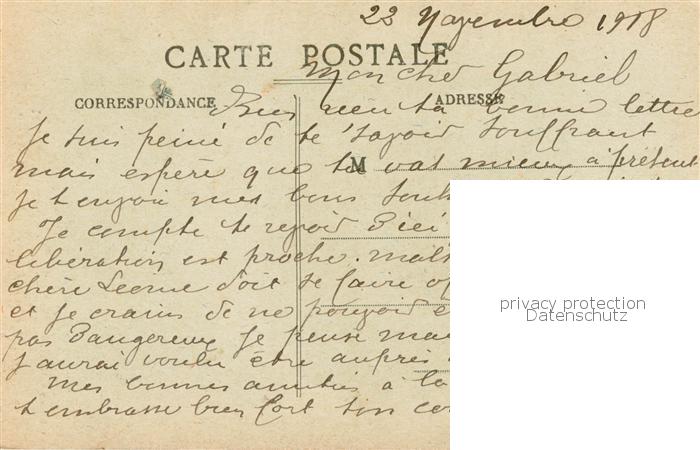 22 Novembre 1918
CARTE POSTALE
Mon cher Gabriel
CORRESPONDANCE
ADRESSE
Bien reçu ta bonne lettre
Je suis peiné de te savoir souffrant
M
mais espère que tu vas mieux à présent
Je t'envoie mes bons
Je compte te revoir d'ici
libération est proche.
chère Leonie doit se faire
et je crains de ne pouvoir
pas dangereux je pense
j'aurai voulu être auprès
Mes bonnes amitiés à
t'embrasse bien fort ton
privacy protection
Datenschutz